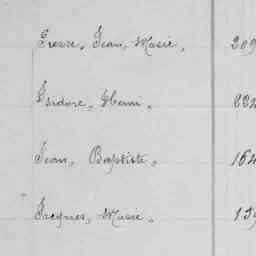 Pierre, Jean, Marie, 209
Isidore, Henri, 224
Jean, Baptiste, 164
Jacques, Marie, 159